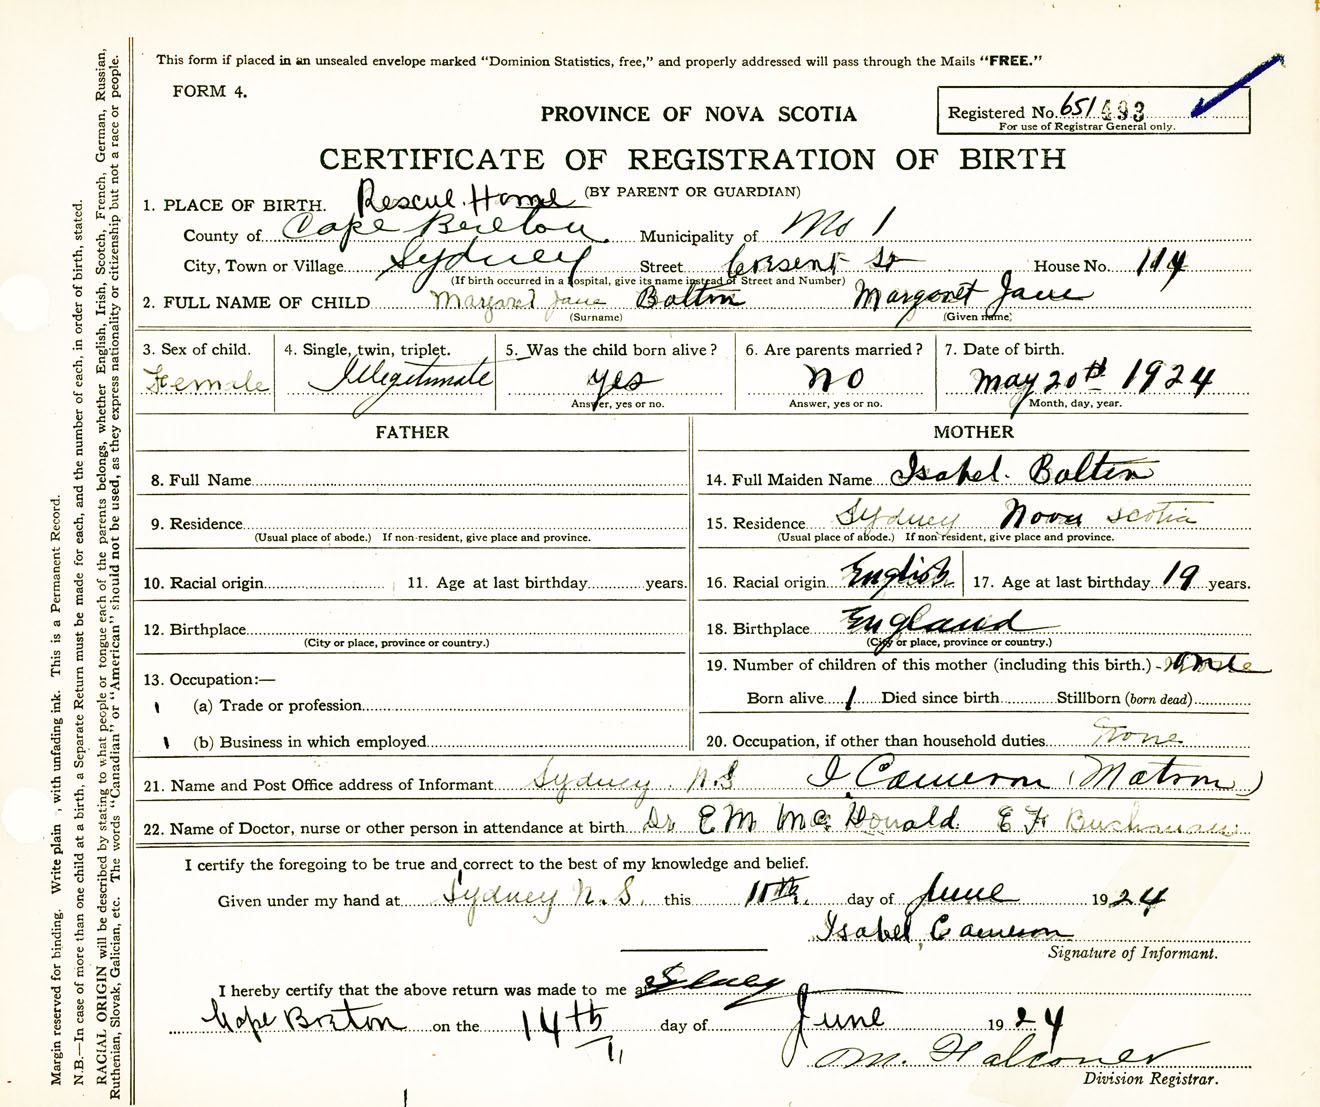 This form if placed in an unsealed envelope marked "Dominion Statistics, free," and properly addressed will pass through the Mails "FREE."
FORM 4.
PROVINCE OF NOVA SCOTIA
Registered No. 651 493
For use of Registrar General only.
CERTIFICATE OF REGISTRATION OF BIRTH
(BY PARENT OR GUARDIAN)
1. PLACE OF BIRTH. Rescue Home
County of Cape Breton Municipality of No 1
City, Town or Village Sydney Street St House No. 114
(If birth occurred in a hospital, give its name instead of Street and Number)
2. FULL NAME OF CHILD Margaret Jane Bolton Margaret Jane
(Surname) (Given name)
3. Sex of child. Female
4. Single, twin, triplet. Illegitimate
5. Was the child born alive? yes
Answer, yes or no.
6. Are parents married? no
Answer, yes or no.
7. Date of birth. May 20th 1924
Month, day, year.
FATHER
8. Full Name
9. Residence
(Usual place of abode.) If non-resident, give place and province.
10. Racial origin 11. Age at last birthday years.
12. Birthplace
(City or place, province or country.)
13. Occupation:—
(a) Trade or profession
(b) Business in which employed
MOTHER
14. Full Maiden Name Isabel Bolton
15. Residence Sydney Nova Scotia
(Usual place of abode.) If non-resident, give place and province.
16. Racial origin English 17. Age at last birthday 19 years.
18. Birthplace England
(City or place, province or country.)
19. Number of children of this mother (including this birth.)
Born alive 1 Died since birth Stillborn (born dead)
20. Occupation, if other than household duties None
21. Name and Post Office address of Informant Sydney N.S I. Cameron (Matron)
22. Name of Doctor, nurse or other person in attendance at birth Dr E M McDonald E F
I certify the foregoing to be true and correct to the best of my knowledge and belief.
Given under my hand at Sydney N.S. this day of June 1924
Isabel Cameron
Signature of Informant.
I hereby certify that the above return was made to me at Sydney
Cape Breton on the 14th day of June 1924
M. Falconer
Division Registrar.
Margin reserved for binding. Write plain , with unfading ink. This is a Permanent Record.
N.B.—In case of more than one child at a birth, a Separate Return must be made for each, and the number of each, in order of birth, stated.
RACIAL ORIGIN will be described by stating to what people or tongue each of the parents belongs, whether English, Irish, Scotch, French, German, Russian,
Ruthenian, Slovak, Galician, etc. The words "Canadian" or "American" should not be used, as they express nationality or citizenship but not a race or people.